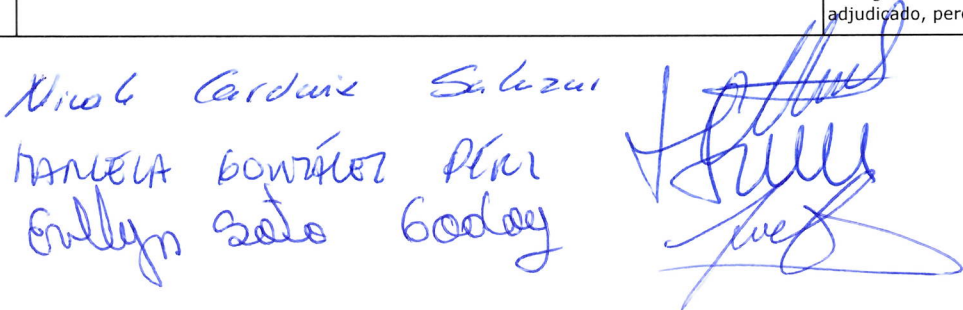 adjudicado, per
Nicole Salazar
MARCELA GONZÁLEZ PÉREZ
Evellyn Soto Godoy